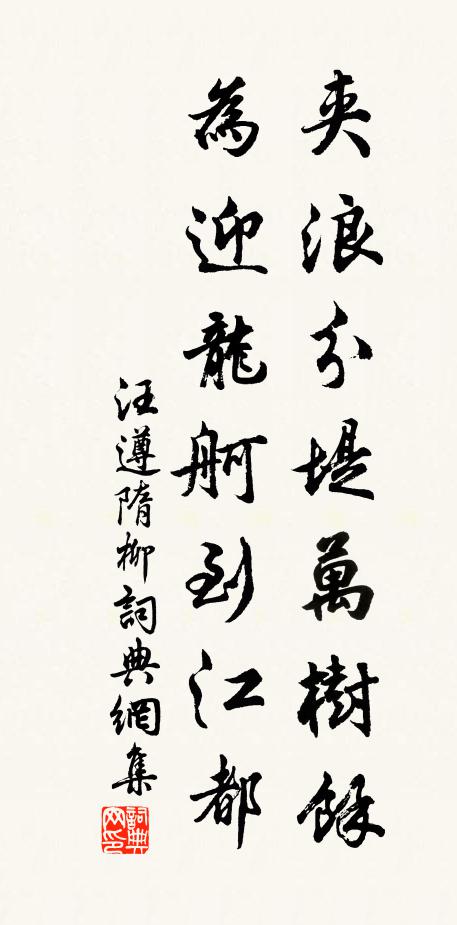 夾浪分堤萬樹餘
為迎龍舸到江都
汪遵隋柳詞典網集
詞典网印